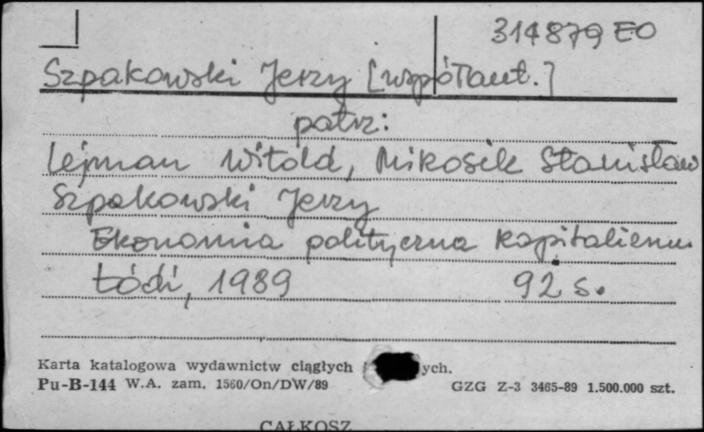 314879 EO
Szpakowski Jerzy [współaut.]
patrz:
Lejman Witold, Mikosik Stanisław
Szpakowski Jerzy
Ekonomia polityczna kapitalizmu
Łódź, 1989 92 s.
Karta katalogowa wydawnictw ciągłych ych.
Pu-B-144 W.A. zam. 1560/On/DW/89 GZG Z-3 3465-89 1.500.000 szt.
CAŁKOSZ